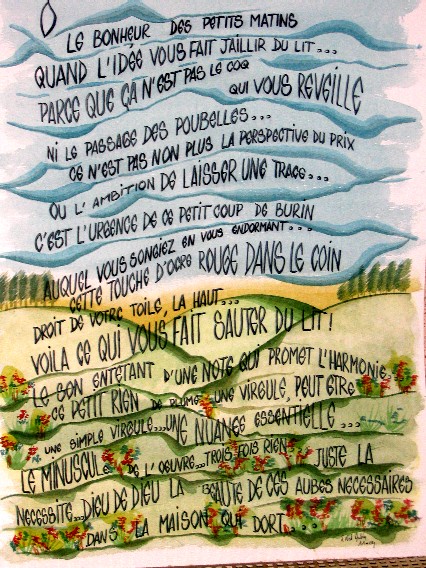 Ô LE BONHEUR DES PETITS MATINS
QUAND L'IDÉE VOUS FAIT JAILLIR DU LIT...
PARCE QUE ÇA N'EST PAS LE COQ QUI VOUS REVEILLE
NI LE PASSAGE DES POUBELLES...
CE N'EST PAS NON PLUS LA PERSPECTIVE DU PRIX
OU L'AMBITION DE LAISSER UNE TRACE...
C'EST L'URGENCE DE CE PETIT COUP DE BURIN
AUQUEL VOUS SONGIEZ EN VOUS ENDORMANT...
CETTE TOUCHE D'OCRE ROUGE DANS LE COIN
DROIT DE VOTRE TOILE, LA HAUT...
VOILA CE QUI VOUS FAIT SAUTER DU LIT!
LE SON ENTÉTANT D'UNE NOTE QUI PROMET L'HARMONIE,
CE PETIT RIEN DE PLUME, UNE VIRGULE, PEUT ÊTRE
UNE SIMPLE VIRGULE...UNE NUANCE ESSENTIELLE...
LE MINUSCULE DE L'OEUVRE...TROIS FOIS RIEN JUSTE LA
NECESSITE...DIEU DE DIEU LA BEAUTE DE CES AUBES NECESSAIRES
DANS LA MAISON QUI DORT....